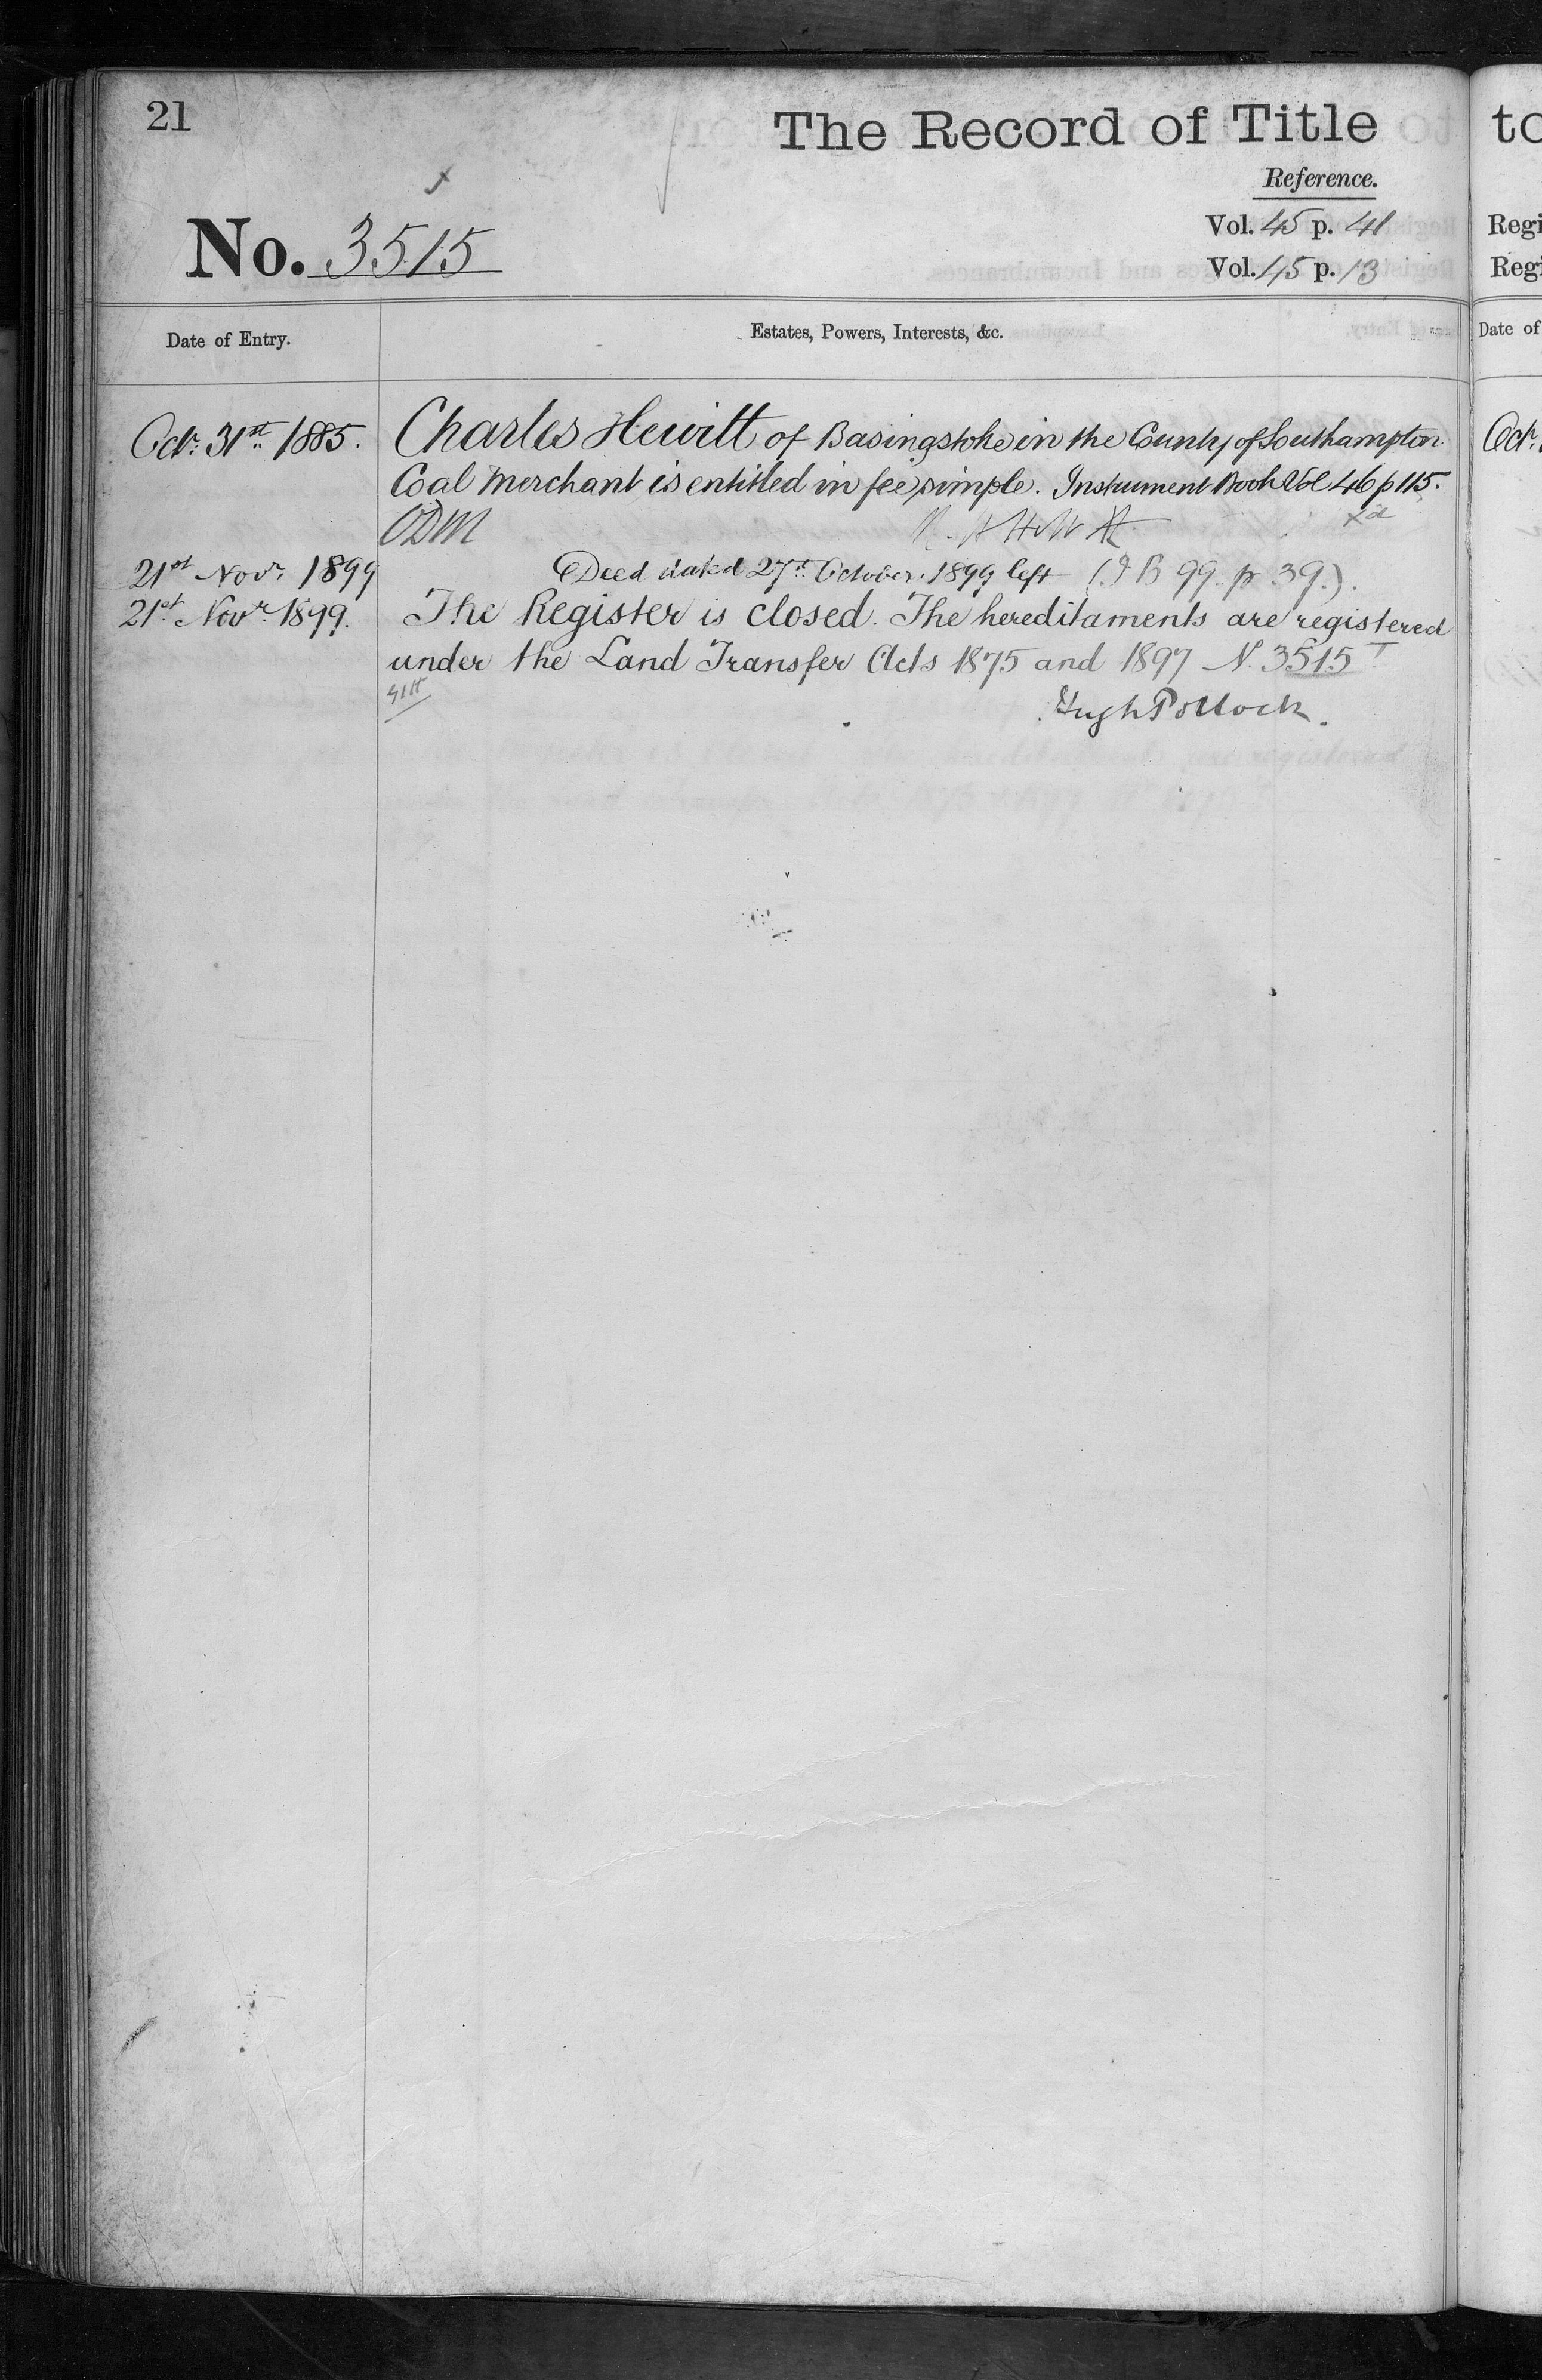 21
The Record of Title
Reference.
No. 3515
Vol. 45 p. 41
Vol. 45 p. 13
Date of Entry.
Estates, Powers, Interests, &c.
Octr. 31st 1885.
Charles Hewitt of Basingstoke in the County of Southampton
Coal Merchant is entitled in fee simple. Instrument Book Vol 46 p 115.
ODM
21st Novr. 1899
Deed dated 27th October 1899 left (I B 99. p 39.).
21st Novr 1899.
The Register is closed. The hereditaments are registered
under the Land Transfer Acts 1875 and 1897 N. 3515 T
Hugh Pollock.
to
Regi
Regi
Date of
Oct.